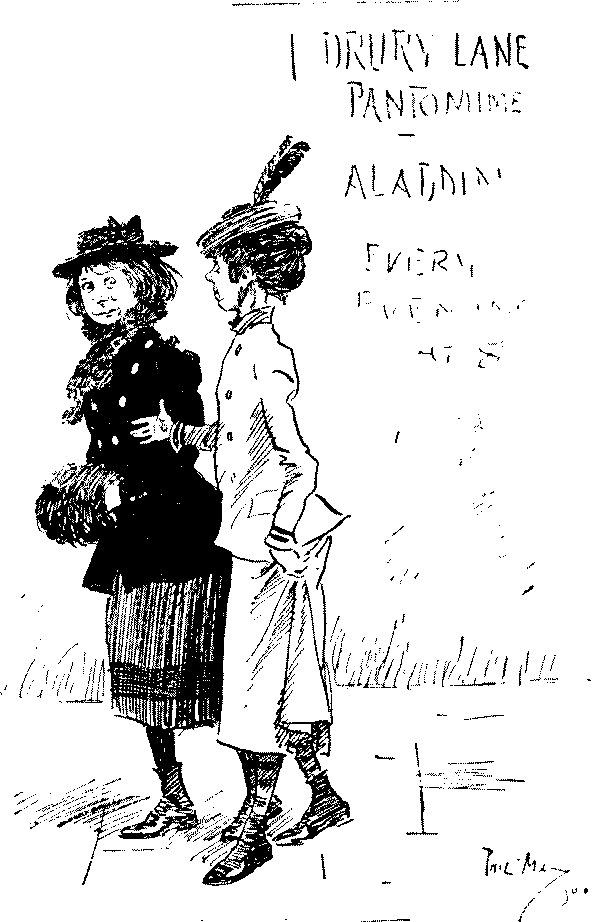 DRURY LANE
PANTOMIME
ALADDIN
EVERY
EVENING
AT 8
Phil May